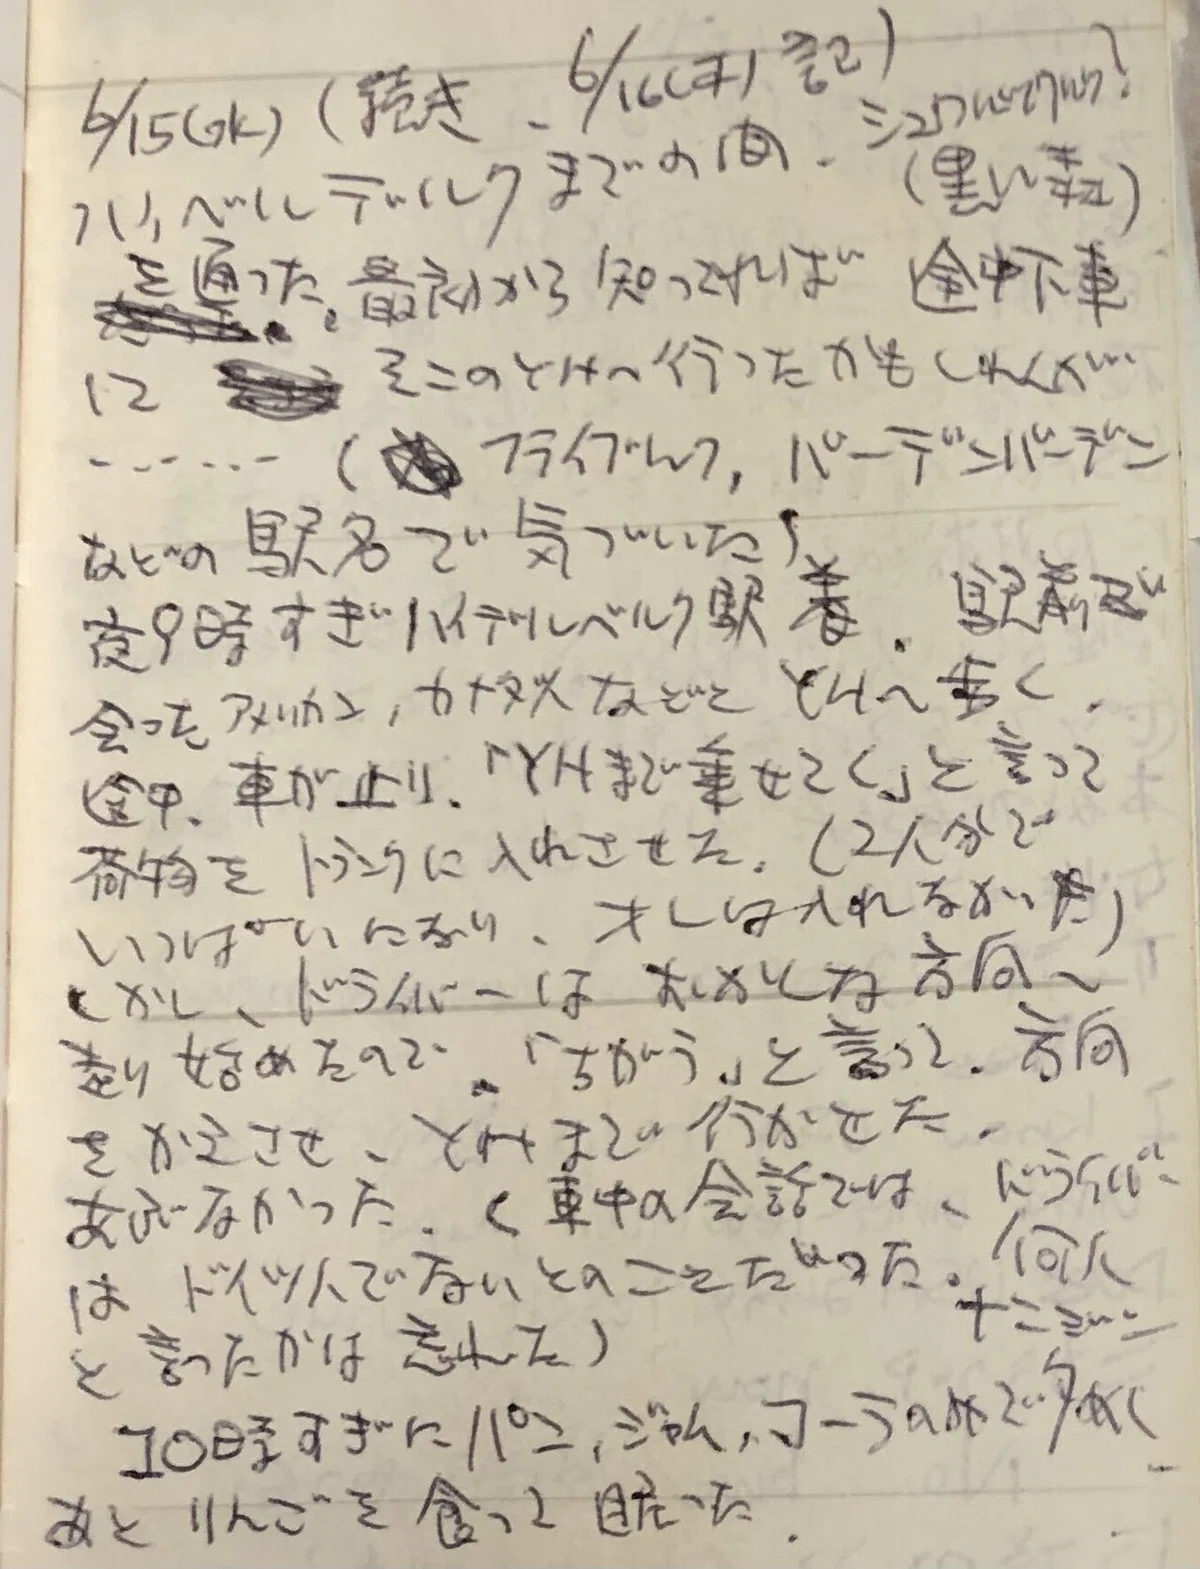 6/15(火) (続き、6/16(水)記)
ハイベルデルクまでの間、シュワルツバルク?
(黒い森)
を通った。最初から知ってれば 途中下車
に そこのとYHへ行ったかもしれんが…
…… ( フライブルク, バーデンバーデン
などの駅名で気づいた)
夜9時すぎハイデルベルク駅着. 駅前で
会ったアメリカン, カナダ人などとYHへ歩く.
途中. 車が止り.「YHまで乗せてく」と言って
荷物をトランクに入れさせた. (2人分で
いっぱいになり、オレは入れなかった)
しかし、ドライバーはおかしな方向へ
走り始めたので.「ちがう」と言って. 方向
をかえさせ、YHまで行かせた.
あぶなかった. (車中の会話では、ドライバー
は ドイツ人でないとのことだった. 何人
と言ったかは忘れた)
10時すぎにパン, ジャム, コーラのみで夕めし
あとりんごを食って眠った.